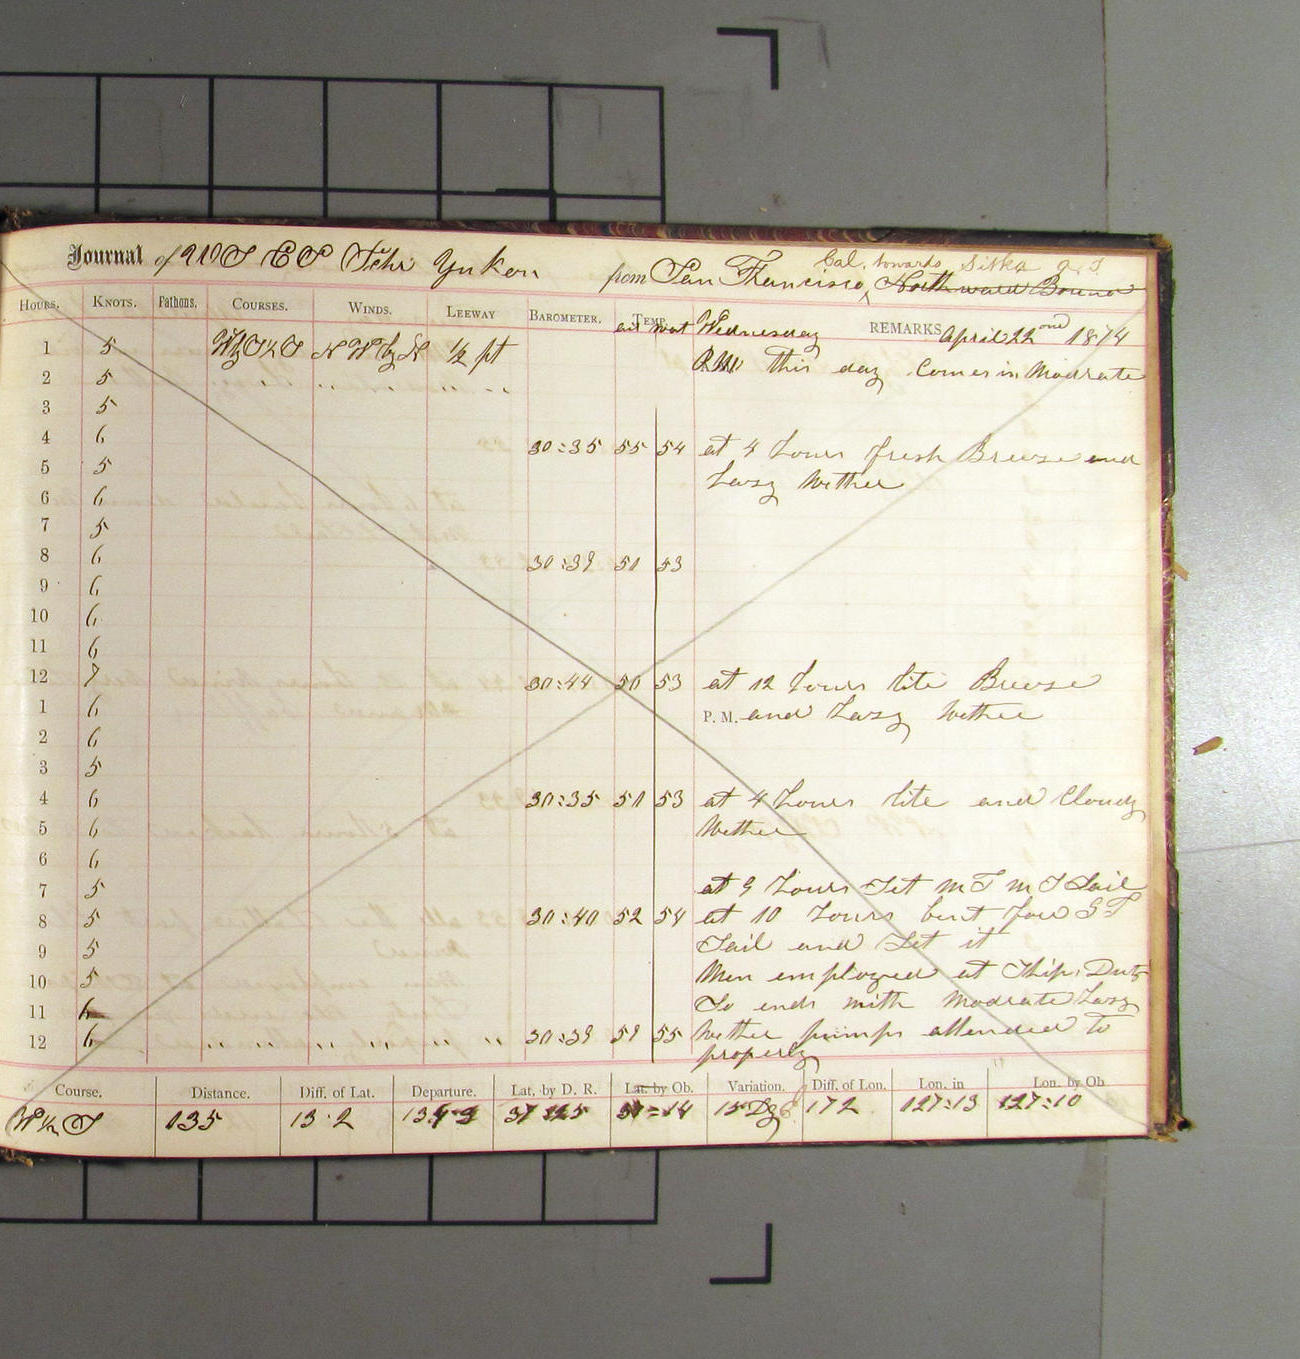 Journal of U S C S Schr Yukon from San Francisco, Cal. towards Sitka a. T. North ward Bound
HOURS. KNOTS. Fathoms. COURSES. WINDS. LEEWAY BAROMETER. TEMP. REMARKS
air wat Wednesday April 22ond 1874
1 5 W by S ½ S N W by N ½ pt
P.M. this day Comes in Modrate
2 5 " " " " " " "
3 5
4 6 30:35 55 54 at 4 hours fresh Breese and
5 5 Hasy Wether
6 6
7 5
8 6 30:39 51 53
9 6
10 6
11 6
12 7 30:44 50 53 at 12 hours lite Breese
1 6 P. M. and Hasy Wether
2 6
3 5
4 6 30:35 51 53 at 4 hours lite and Cloudy
5 6 Wether
6 6
7 5 at 9 hours Set M T M S Sail
8 5 30:40 52 54 at 10 hours bent fow G T
9 5 Sail and Set it
10 5 Men employed at Ships Duty
11 6 So ends with Modrate Hasy
12 6 " " " " " " 30:39 59 55 Wether pumps attended to
properly
Course. Distance. Diff. of Lat. Departure. Lat. by D. R. Lat. by Ob. Variation. Diff. of Lon. Lon. in Lon. by Ob
W ½ S 135 13·2 134·3 37 25 37=14 15 Dg 172 127:13 127:10